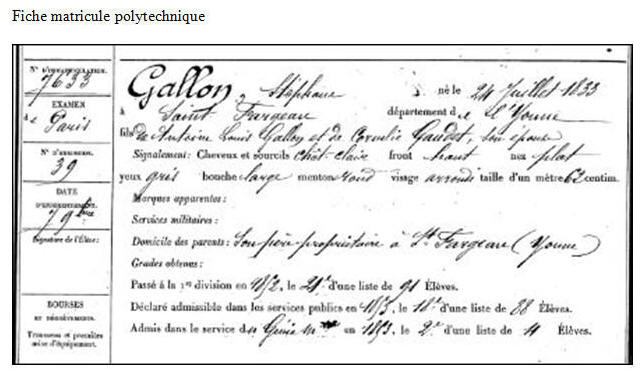 Fiche matricule polytechnique
N° D'IMMATRICULATION.
7633
EXAMEN
de Paris
N° D'ADMISSION.
39
DATE
79bre
Signature de l'Élève:
BOURSES
ET DÉGRÈVEMENTS.
Trousseau et première
mise d'équipement.
Gallon, Stéphane né le 24 Juillet 1833
à Saint Fargeau département de l'Yonne
fils de Antoine Louis Gallon et de Cornélie Gaudet, son épouse
Signalement: Cheveux et sourcils chât-clairs front haut nez plat
yeux gris bouche large menton rond visage arrondi taille d'un mètre 62 centim.
Marques apparentes:
Services militaires:
Domicile des parents: Son père propriétaire à St Fargeau (Yonne)
Grades obtenus:
Passé à la 1re division en 1852, le 21e d'une liste de 91 Élèves.
Déclaré admissible dans les services publics en 1853, le 18e d'une liste de 88 Élèves.
Admis dans le service du Génie mre en 1853, le 2e d'une liste de 4 Élèves.